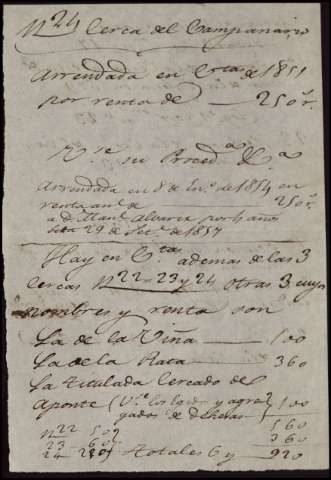 Nº 24 Cerca del Campanario
Arrendada en Cta de 1851
por renta de — 250 r.
V.se su Proced.a &.a
Arrendada en 8 de En.o de 1854 en
renta anl. de 250 r.
a D. Manl. Alvarez por 4 años
hta 29 de Set.e de 1857
Hay en Cta ademas de las 3
cercas Nº 22 - 23 y 24 otras 3 cuyos
nombres y renta son
La de la Viña — 100
La de la Raca — 360
La titulada Cercado de
Aponte (V.e los y agre 100
gados de dehesas 560
Nº 22 50 360
23 60
24 250 totales 6 y — 920